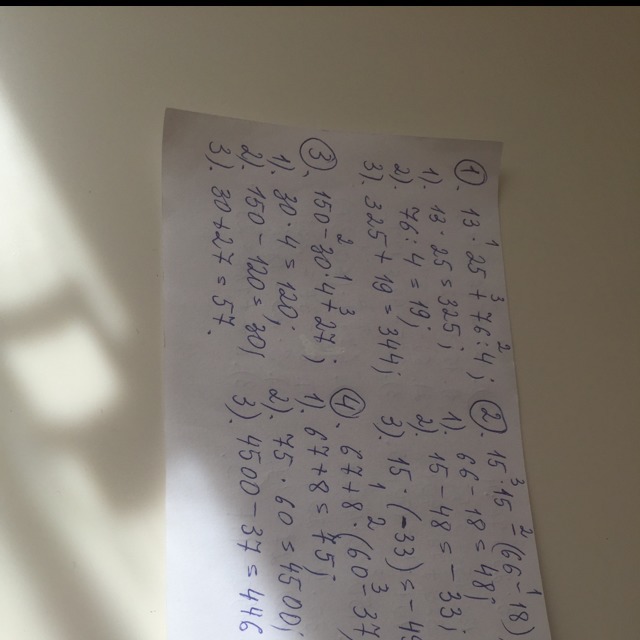 1). 13 · 25 + 76 : 4 ;
1). 13 · 25 = 325 ;
2). 76 : 4 = 19 ;
3). 325 + 19 = 344 ;
2). 15 · 15 - (66 - 18)
1). 66 - 18 = 48 ;
2). 15 - 48 = - 33 ;
3). 15 · (-33) = -49
3). 150 - 30 · 4 + 27 ;
1). 30 · 4 = 120 ;
2). 150 - 120 = 30 ;
3). 30 + 27 = 57 .
4). 67 + 8 · (60 - 37
1). 67 + 8 = 75 ;
2). 75 · 60 = 4500 ;
3). 4500 - 37 = 446